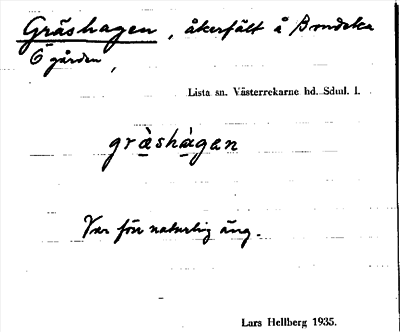 Gräshagen, åkerfält å
Ö gården,
Lista sn. Västerrekarne hd. Sdml. l.
gràshàgan
Var förr naturlig äng.
Lars Hellberg 1935.